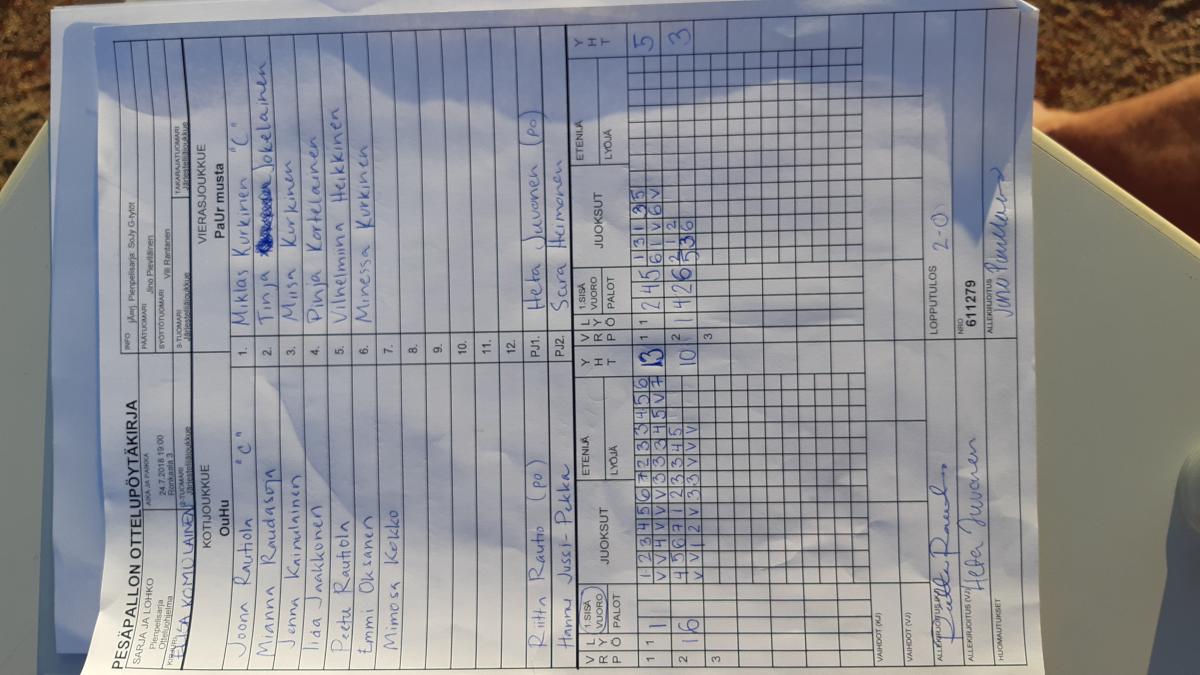 PESÄPALLON OTTELUPÖYTÄKIRJA
SARJA JA LOHKO
Pienpelisarja
Otteluohjelma
AIKA JA PAIKKA
24.7.2018 19:00
Ronkaala 3
INFO jÄmj. Pienpelisarja: SoJy G-tytöt
PÄÄTUOMARI Jino Pieviläinen
SYÖTTÖTUOMARI Vili Rantanen
KIRJURI
KOMULAINEN
2-TUOMARI
Järjestelijäjoukkue
3-TUOMARI
Järjestelijäjoukkue
TAKARAJATUOMARI
Järjestelijäjoukkue
KOTIJOUKKUE
OuHu
VIERASJOUKKUE
PaUr musta
Joona Rautiola "C" 1. Miklas Kurkinen "C"
Mianna Raudasoja 2. Tinja Jokelainen
Jenna Kainulainen 3. Miisa Kurkinen
Iida Jaakkonen 4. Pinja Kortelainen
Peetu Rautiola 5. Vilhelmiina Heikkinen
Emmi Oksanen 6. Minessa Kurkinen
Mimosa Kokko 7.
8.
9.
10.
11.
12.
Riitta Rautio (po) PJ1. Heta Juvonen (po)
Hannu Jussi-Pekka PJ2. Sara Heimonen
V R P L Y Ö 1.SISÄ VUORO PALOT JUOKSUT ETENIJÄ LYÖJÄ Y H T V R P L Y Ö 1.SISÄ VUORO PALOT JUOKSUT ETENIJÄ LYÖJÄ Y H T
1 1 1 1 2 3 4 5 6 7 2 3 3 4 5 6 13 1 1 2 4 5 1 3 1 3 5 5
V V 4 V V V V 3 3 3 4 5 V 7 6 1 V 6 V
2 1 6 4 5 6 7 1 2 3 3 4 5 10 2 1 4 2 6 2 1 2 3
V V 1 2 V 3 3 V V V 5 3 6
3 3
VAIHDOT (KJ)
VAIHDOT (VJ)
ALLEKIRJOITUS (KJ)
LOPPUTULOS 2-0
ALLEKIRJOITUS (VJ) Heta Juvonen
NRO
611279
HUOMAUTUKSET
ALLEKIRJOITUS